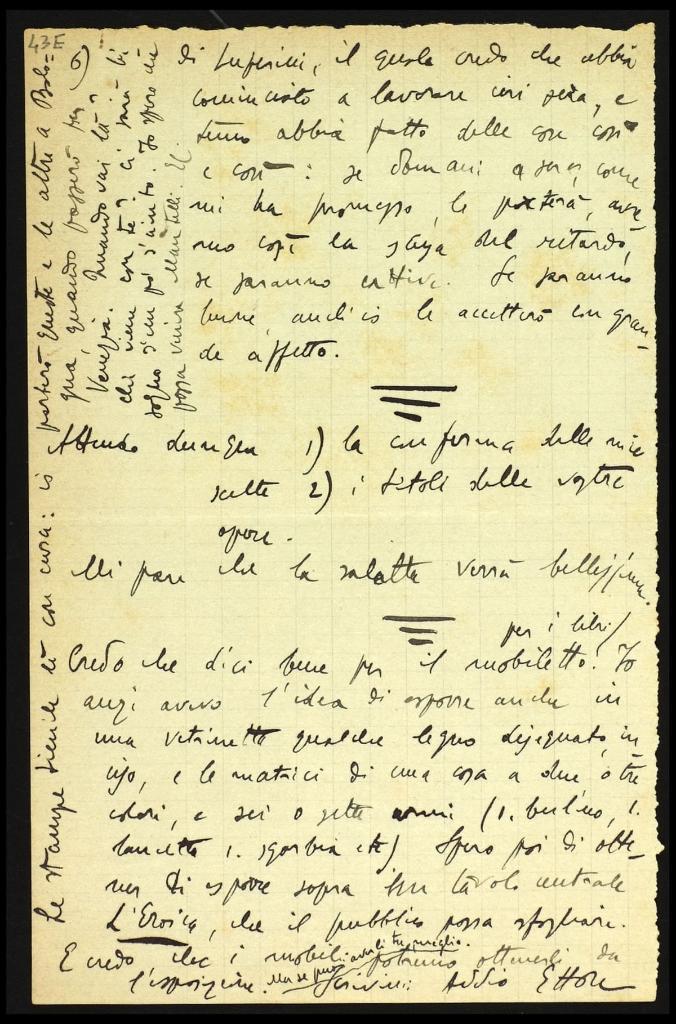 43E
6)
di Luperini, il quale credo che abbia
cominciato a lavorare ieri sera, e
temo abbia fatto delle cose così
e così: se domani a sera, come
mi ha promesso, le porterà, avre-
mo così la scusa del ritardo,
se saranno cattive. Se saranno
buone, anch'io le accetterò con gran-
de affetto.
Attendo dunque 1) la conferma delle mie
scelte 2) i titoli delle vostre
opere.
Mi pare che la saletta verrà bellissima.
per i libri/
Credo che dici bene per il mobiletto. Io
anzi avevo l'idea di esporre anche in
una vetrinetta qualche legno disegnato, in-
ciso, e le matrici di una cosa a due o tre
colori, e sei o sette (1. bulino, 1.
lancetta 1. sgorbia etc) Spero poi di otte-
ner di esporre sopra un tavolo centrale
L'Eroica, che il pubblico possa sfogliare.
E credo che i mobili potremo ottenerli da
l'esposizione. Ma se puoi averli tu, meglio.
Scrivimi Addio Ettore
Le stampe tienile tu con cura: io porterò queste e le altre a Bolo=
gna, quando passerò per
Venezia. Quando vai là?
chi viene con te? ci sarà bi
sogno d'un po' d'aiuto. Io spero che
possa venire Mantelli.